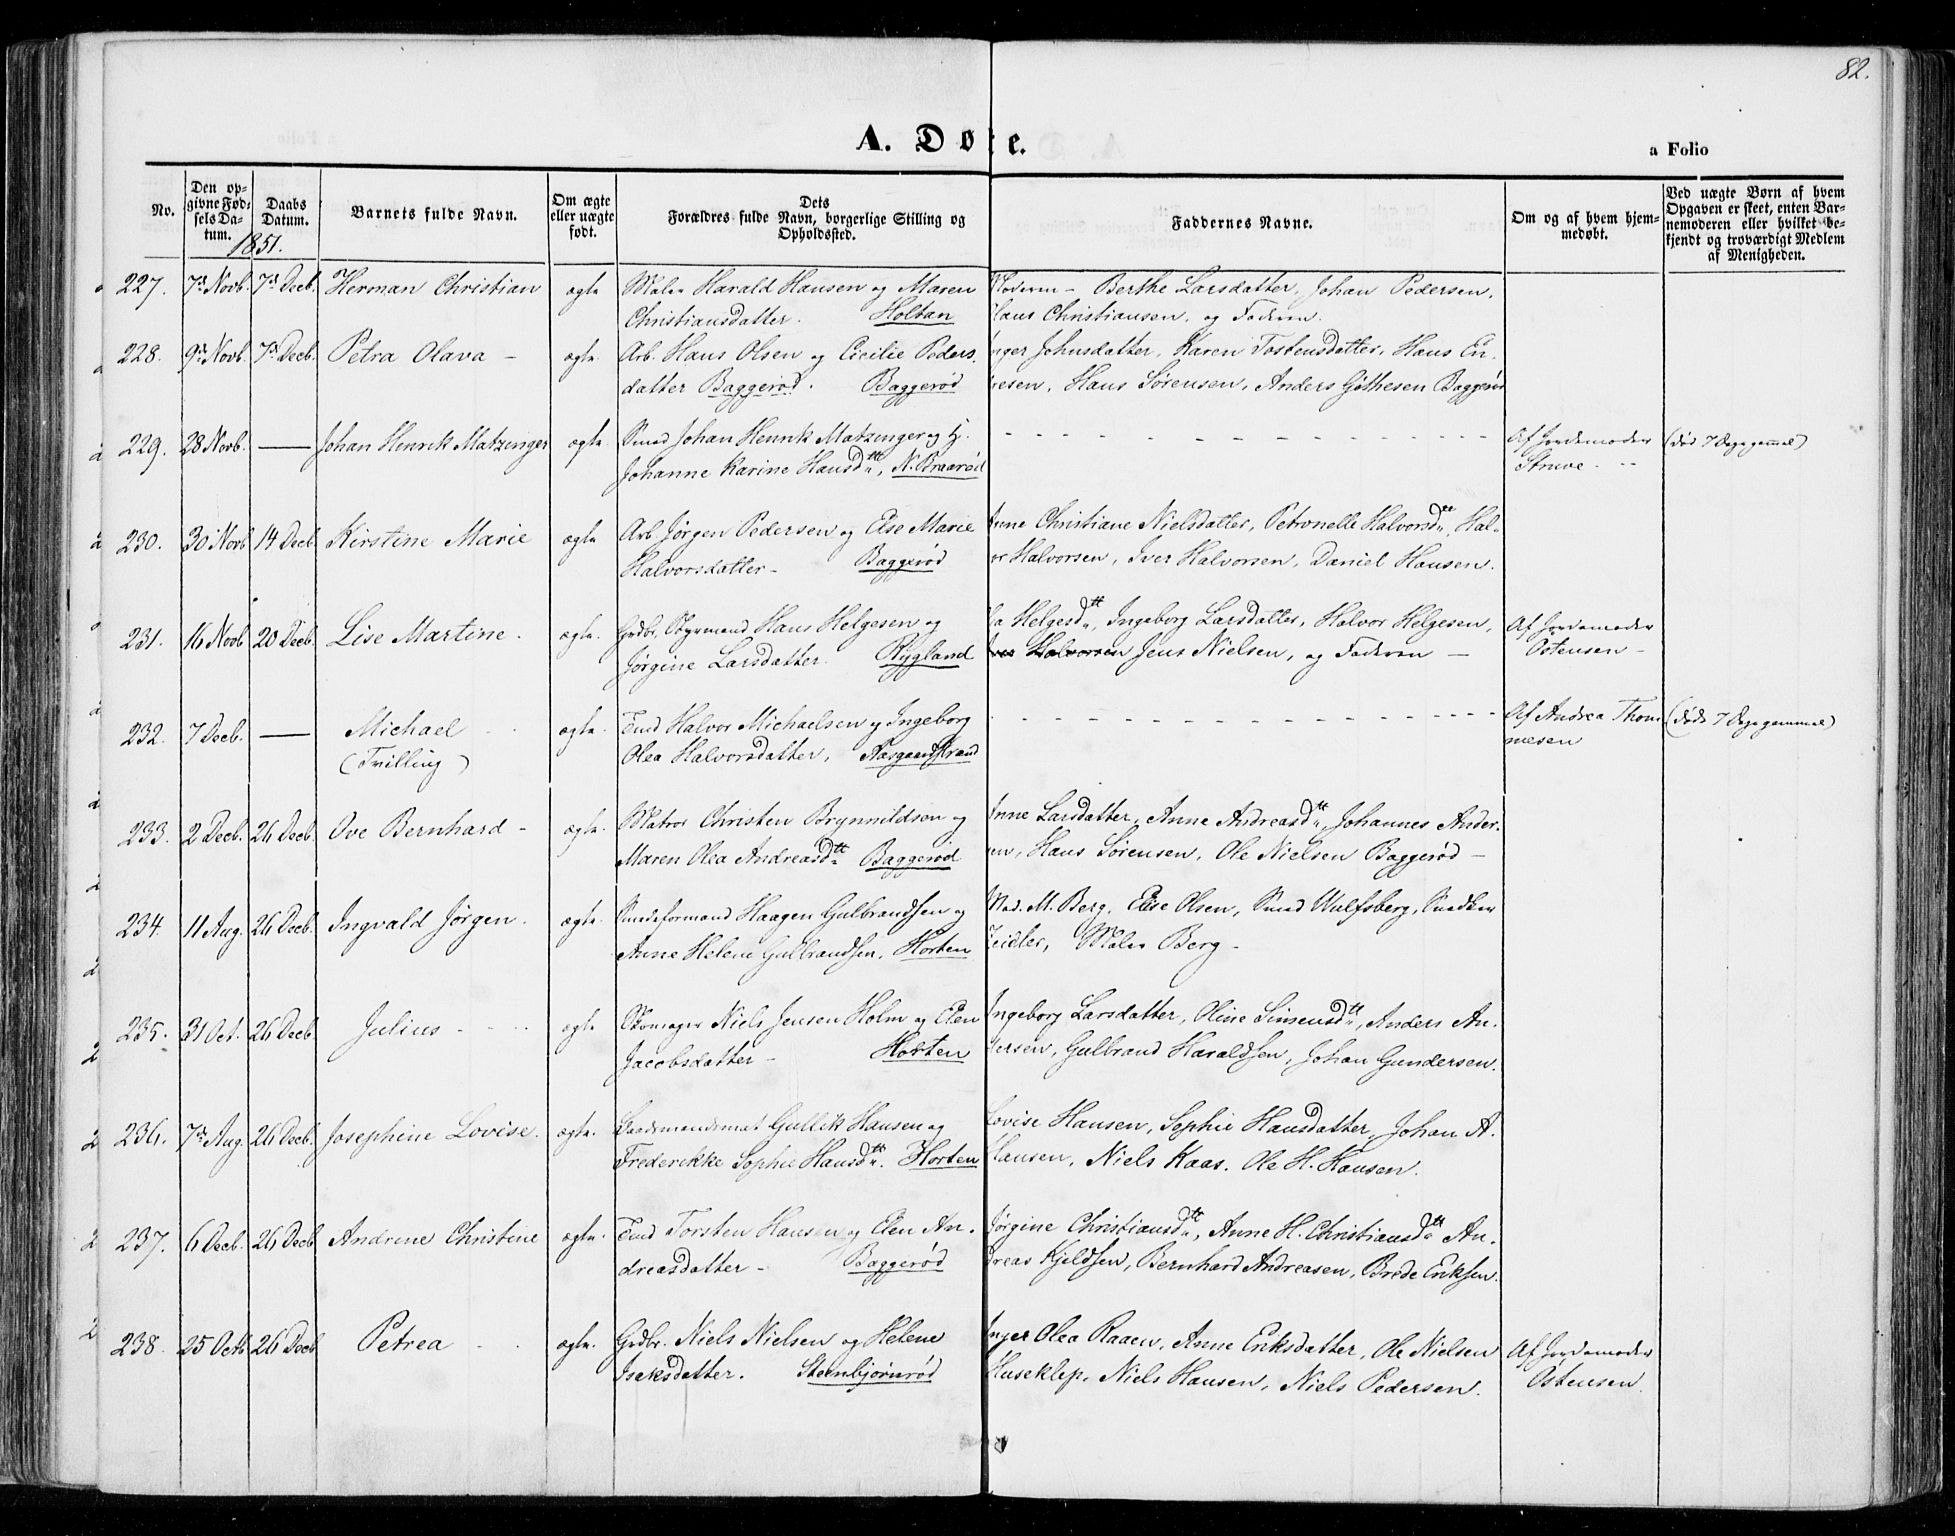 82.
A. Døbte.
a Folio
No.
Den op-
givne Fød-
sels Da-
tum.
Daabs
Datum.
Barnets fulde Navn.
Om ægte
eller uægte
født.
Dets
Forældres fulde Navn, borgerlige Stilling og
Opholdssted.
Faddernes Navne.
Om og af hvem hjem-
medøbt.
Ved uægte Børn af hvem
Opgaven er skeet, enten Bar-
nemoderen eller hvilket be-
kjendt og troværdigt Medlem
af Menigheden.
1851.
227. 7de Novb. 7de Decb. Herman Christian ægte Maler Harald Hansen og Maren Moderen - Berthe Larsdatter, Johan Pedersen,
Christiansdatter. Holtan Claus Christiansen, og Faderen.
228. 9de Novb. 7de Decb. Petra Olava - ægte Arb. Hans Olsen og Cicilie Peders- Inger Johnsdatter, Karen Tostensdatter, Hans En-
datter Baggerød. Baggerød Hans Sørensen, Anders Gjøthesen Baggerød
229. 28 Novb. — Johan Henrik Matzinger ægte Smed Johan Henrik Matzinger og Hj. - - - Af Jordemoder (død 7 Dage gammel)
Johanne Karine Hansdtt, N. Braarød Struve
230. 30 Novb 14 Decb. Kirstine Marie ægte Arb. Jørgen Pedersen og Else Marie Anne Christiane Nielsdatter, Petronelle Halvorsdtt, Hal-
Halvorsdatter - Baggerød vor Halvorsen, Iver Halvorsen, Daniel Hansen.
231. 16 Novb 20 Decb. Lise Martine. ægte. Grdbr. Styrmand Hans Helgesen og Helgesdtt, Ingeborg Larsdatter, Halvor Helgesen, Af Jordemoder
Jørgine Larsdatter. Rygland Halvorsen Jens Nielsen, og Faderen - Østensen -
232. 7 Decb. — Michael ægte. Tmd Halvor Michaelsen og Ingeborg - - - Af Andrea Thom- (døde 7 Dage gammel)
(Tvilling) Olea Halvorsdatter, Aasgaardstrand mesen
233. 2 Decb. 26 Decb. Ove Bernhard - ægte. Matros Christen Brynnildsen og Anne Larsdatter, Anne Andreasdtt, Johannes Ander-
Maren Olea Andreasdtt Baggerød sen, Hans Sørensen, Ole Nielsen Baggerød -
234. 11 Aug. 26 Decb. Ingvald Jørgen. ægte. Smedeformand Haagen Gulbrandsen og Mad. M. Berg, Elise Olsen, Smed Wulfsberg, Snedker
Anne Helene Gulbrandsen, Horten Zeidler, Maler Berg -
235. 31 Oct. 26 Decb Julius - ægte Skomager Niels Jensen Holm og Elen Ingeborg Larsdatter, Oline Simensdtt, Anders An-
Jacobsdatter - Horten dersen, Gulbrand Haraldsen, Johan Gundersen.
236. 7de Aug. 26 Decb. Josephine Lovise. ægte. Baadsmandsmat Gullik Hansen og Lovise Hansen, Sophie Hansdatter, Johan A.
Frederikke Sophie Hansdtt. Horten Hansen, Niels Kaas. Ole H. Hansen.
237. 6 Decb. 26 Decb Andrine Christine ægte. Tmd Torsten Hansen og Elen An- Jørgine Christiansdtt, Anne H. Christiansdtt An-
dreasdatter - Baggerød dreas Kjeldsen, Bernhard Andreasen, Brede Eriksen.
238. 25 Octb 26 Decb Petrea ægte. Grdbr. Niels Nielsen og Helene Inger Olea Raaen, Anne Eriksdatter, Ole Nielsen Af Jordemoder
Iseksdatter. Steenbjørnrød Huseklep, Niels Hansen, Niels Pedersen. Østensen.